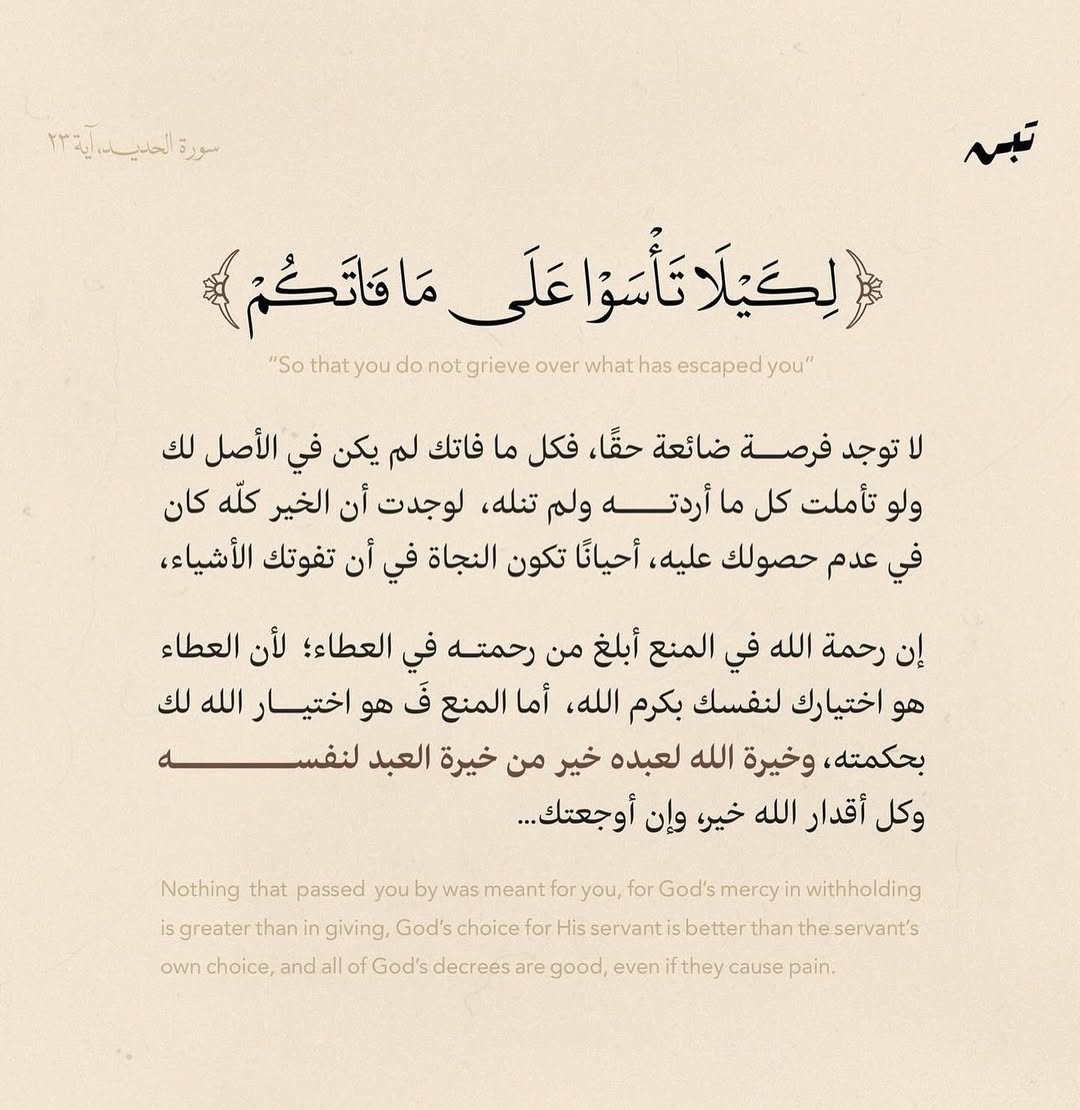 سورة الحديد، آية ٢٣
﴿لِكَيْلَا تَأْسَوْا عَلَى مَا فَاتَكُمْ﴾
“So that you do not grieve over what has escaped you“
لا توجد فرصـــة ضائعة حقًا، فكل ما فاتك لم يكن في الأصل لك
ولو تأملت كل ما أردتـــــه ولم تنله، لوجدت أن الخير كلّه كان
في عدم حصولك عليه، أحيانًا تكون النجاة في أن تفوتك الأشياء،
إن رحمة الله في المنع أبلغ من رحمتــه في العطاء؛ لأن العطاء
هو اختيارك لنفسك بكرم الله، أما المنع فَ هو اختيـــار الله لك
بحكمته، وخيرة الله لعبده خير من خيرة العبد لنفســـــــــــه
وكل أقدار الله خير، وإن أوجعتك...
Nothing that passed you by was meant for you, for God’s mercy in withholding
is greater than in giving, God’s choice for His servant is better than the servant’s
own choice, and all of God’s decrees are good, even if they cause pain.